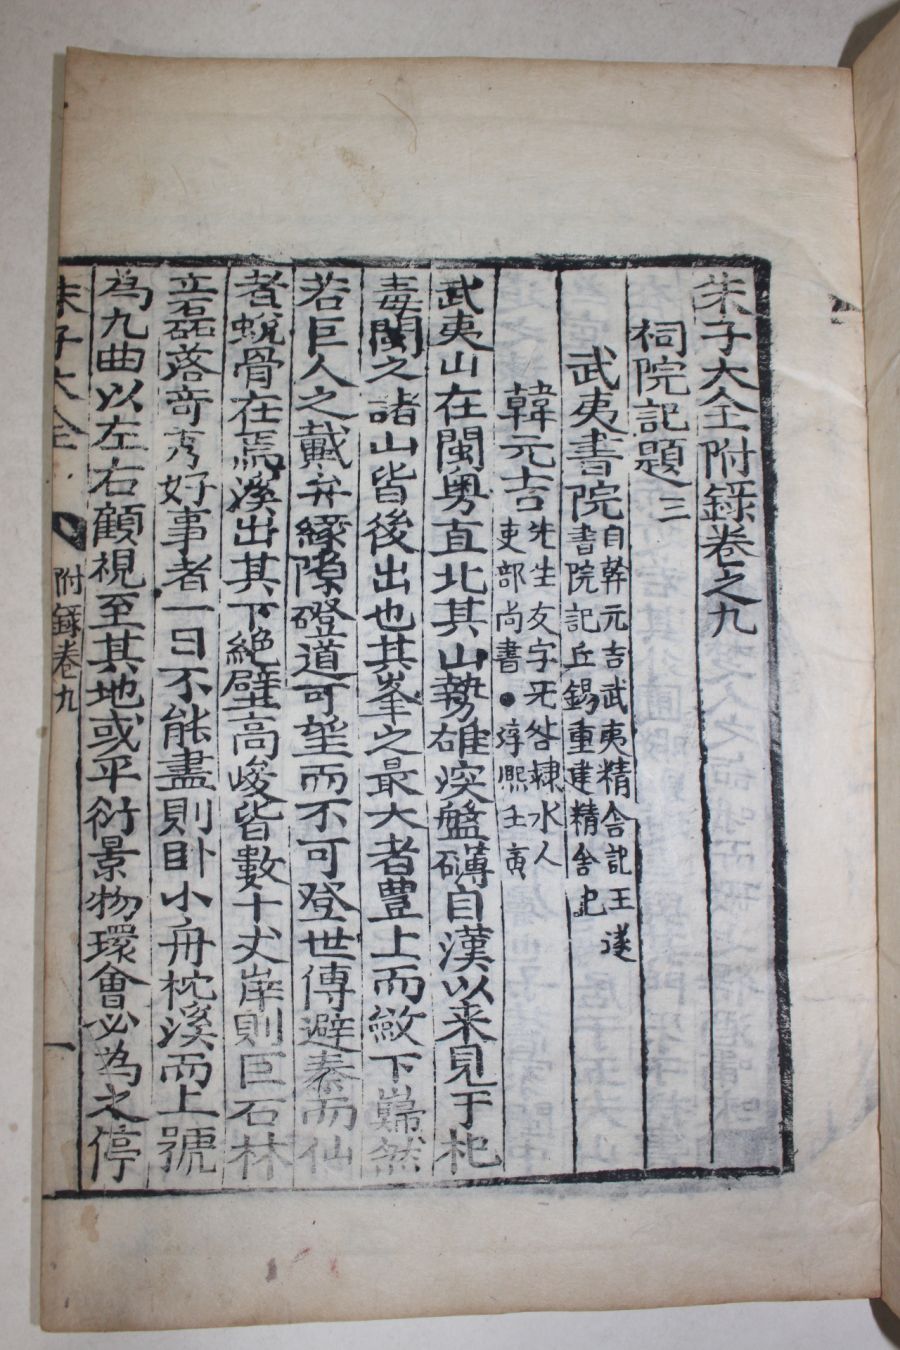 朱子大全附錄卷之九
祠院記題三
武夷書院自韓元吉武夷精舍記王遂
書院記丘錫重建精舍記
韓元吉先生友字无咎棣水人
吏部尚書●淳熙壬寅
武夷山在閩奧直北其山勢雄深盤礴自漢以来見于祀
毒閩之諸山皆後出也其峯之最大者豊上而斂下巋然
若巨人之戴弁緣隙磴道可望而不可登世傳避秦而仙
者蛻骨在焉溪出其下絶壁高峻皆數十丈岸則巨石林
立磊落竒秀好事者一日不能盡則卧小舟枕溪而上號
為九曲以左右顧視至其地或平衍景物環會必為之停
朱子大全 附錄卷九 一